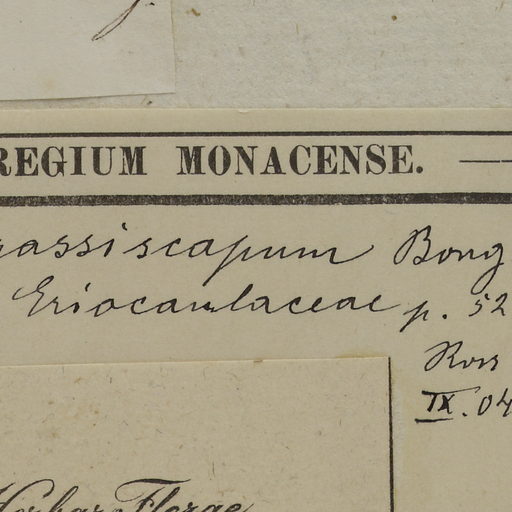 REGIUM MONACENSE.
assiscapum Bong
Eriocaulaceae p. 52
Ross
IX. 04
Herbar. Florae